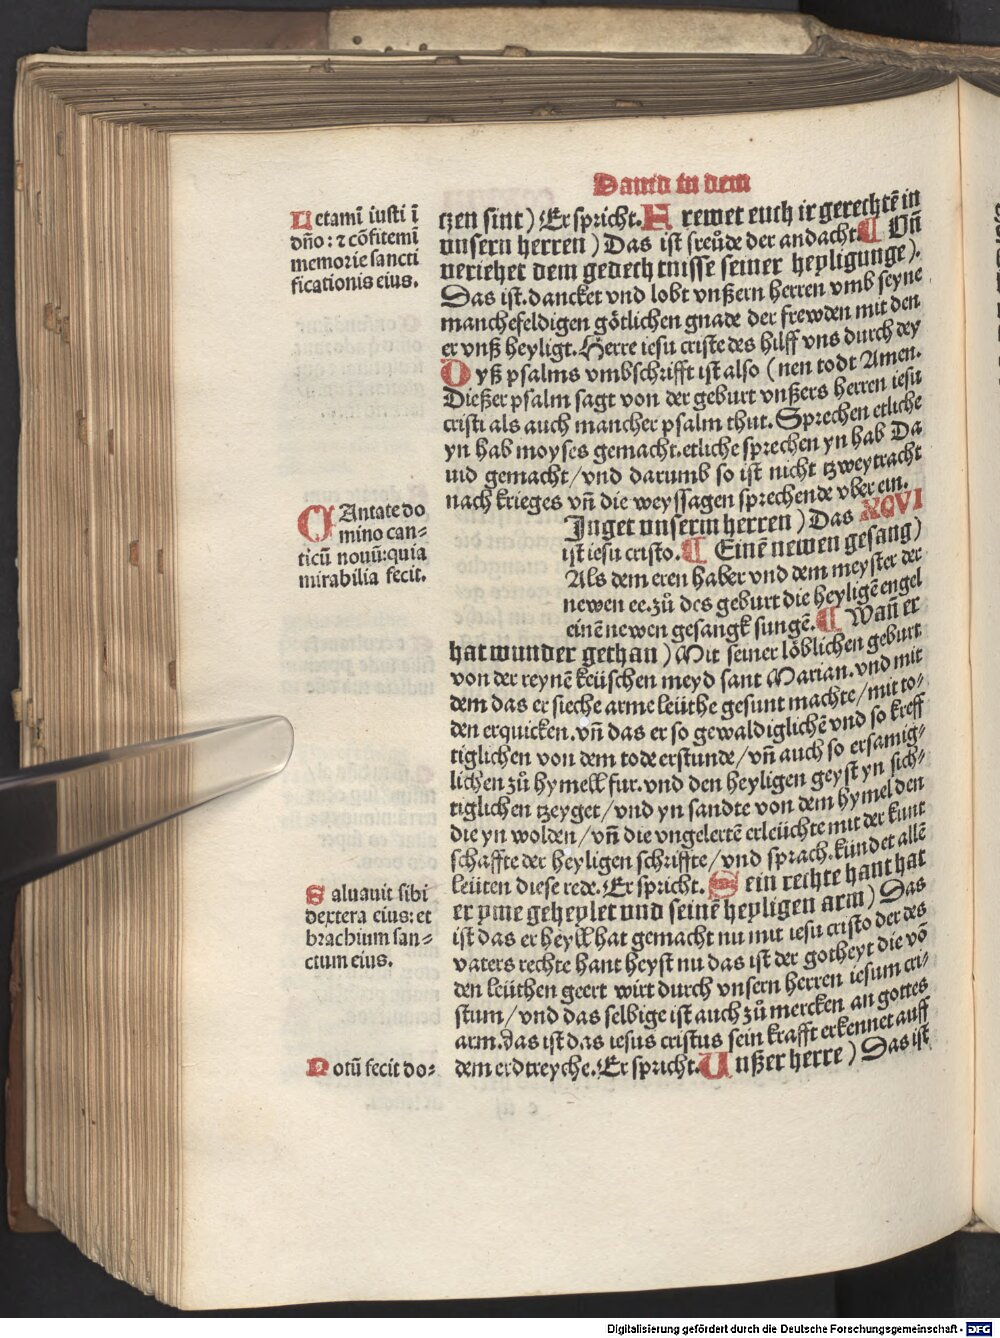 Dauid in dem
Letamī iusti ī
dño: ⁊ cōfitemī
memorie sancti
ficationis eius.
tzen sint) Er spricht. Erewet euch ir gerechtē in
unsern herren) Das ist freüde der andacht. ¶ Uñ
veriehet dem gedechtnisse seiner heyligunge).
Das ist. dancket vnd lobt vnßern herren vmb seyne
manchefeldigen götlichen gnade der frewden mit den
er vnß heyligt. Herre iesu criste des hilff vns durch dey
Dyß psalms vmbschrifft ist also (nen todt Amen.
Dießer psalm sagt von der geburt vnßers herren iesu
cristi als auch mancher psalm thut. Sprechen etliche
yn hab moyses gemacht. etliche sprechen yn hab Da
uid gemacht/vnd darumb so ist nicht tzweytracht
nach krieges vñ die weyssagen sprechende vber ein.
CAntate do
mino can=
ticū nouū: quia
mirabilia fecit.
Inget unserm herren) Das XCVI
ist iesu cristo. ¶ Einē newen gesang)
Als dem eren haber vnd dem meyster der
newen ee. zů des geburt die heyligē engel
einē newen gesangk sungē. ¶ Wañ er
hat wunder gethan) Mit seiner löblichen geburt
von der reynē keüschen meyd sant Marian. vnd mit
dem das er sieche arme leüthe gesunt machte/mit to⸗
den erquicken. vñ das er so gewaldiglichē vnd so kreff
tiglichen von dem tode erstunde/vñ auch so ersamig⸗
lichen zů hymell fur. vnd den heyligen geyst yn sich⸗
tiglichen tzeyget/vnd yn sandte von dem hymel den
die yn wolden/vñ die vngelertē erleüchte mit der kunt
schaffte der heyligen schriffte/vnd sprach. kündet allē
leüten diese rede. Er spricht. Sein rechte hant hat
er yme geheylet und seinē heyligen arm) Das
ist das er heyll hat gemacht nu mit iesu cristo der des
vaters rechte hant heyst nu das ist der gotheyt die vō
den leüthen geert wirt durch vnsern herren iesum cri⸗
stum/vnd das selbige ist auch zů mercken an gottes
arm. das ist das iesus cristus sein krafft erkennet auff
dem erdtreyche. Er spricht. Unßer herre) Das ist
Saluauit sibi
dextera eius: et
brachium san=
ctum eius.
Notū fecit do=
Digitalisierung gefördert durch die Deutsche Forschungsgemeinschaft - DFG